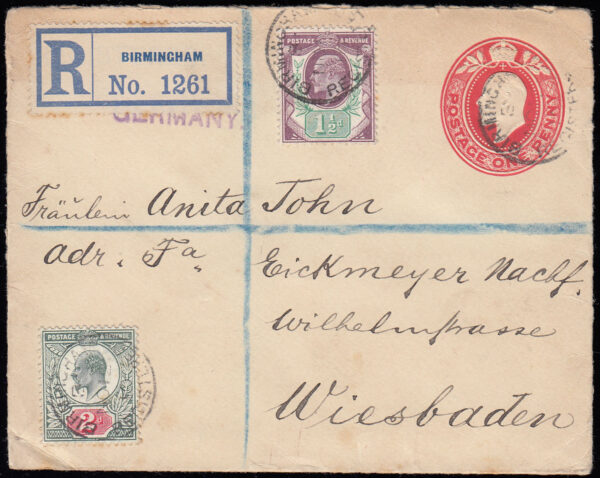 R
BIRMINGHAM
No. 1261
GERMANY
POSTAGE & REVENUE
1½d
POSTAGE ONE PENNY
Fräulein Anita John
adr. Fa. Eickmeyer Nachf.
Wilhelmstrasse
Wiesbaden
POSTAGE & REVENUE
2d